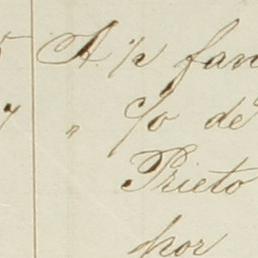 5 A ½ fan
7 " c/o de
Prieto
por